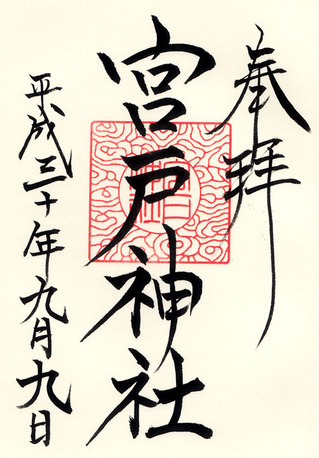 奉拝
宮戸神社
平成三十年九月九日